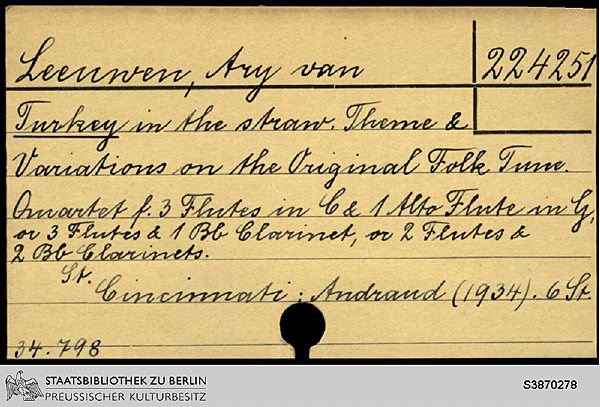 Leeuwen, Ary van
224251
Turkey in the straw. Theme &
Variations on the Original Folk Tune.
Quartet f. 3 Flutes in C & 1 Alto Flute in G,
or 3 Flutes & 1 Bb Clarinet, or 2 Flutes &
2 Bb Clarinets.
St.
Cincinnati: Andraud (1934). 6 St.
34.798
STAATSBIBLIOTHEK ZU BERLIN
PREUSSISCHER KULTURBESITZ
S3870278